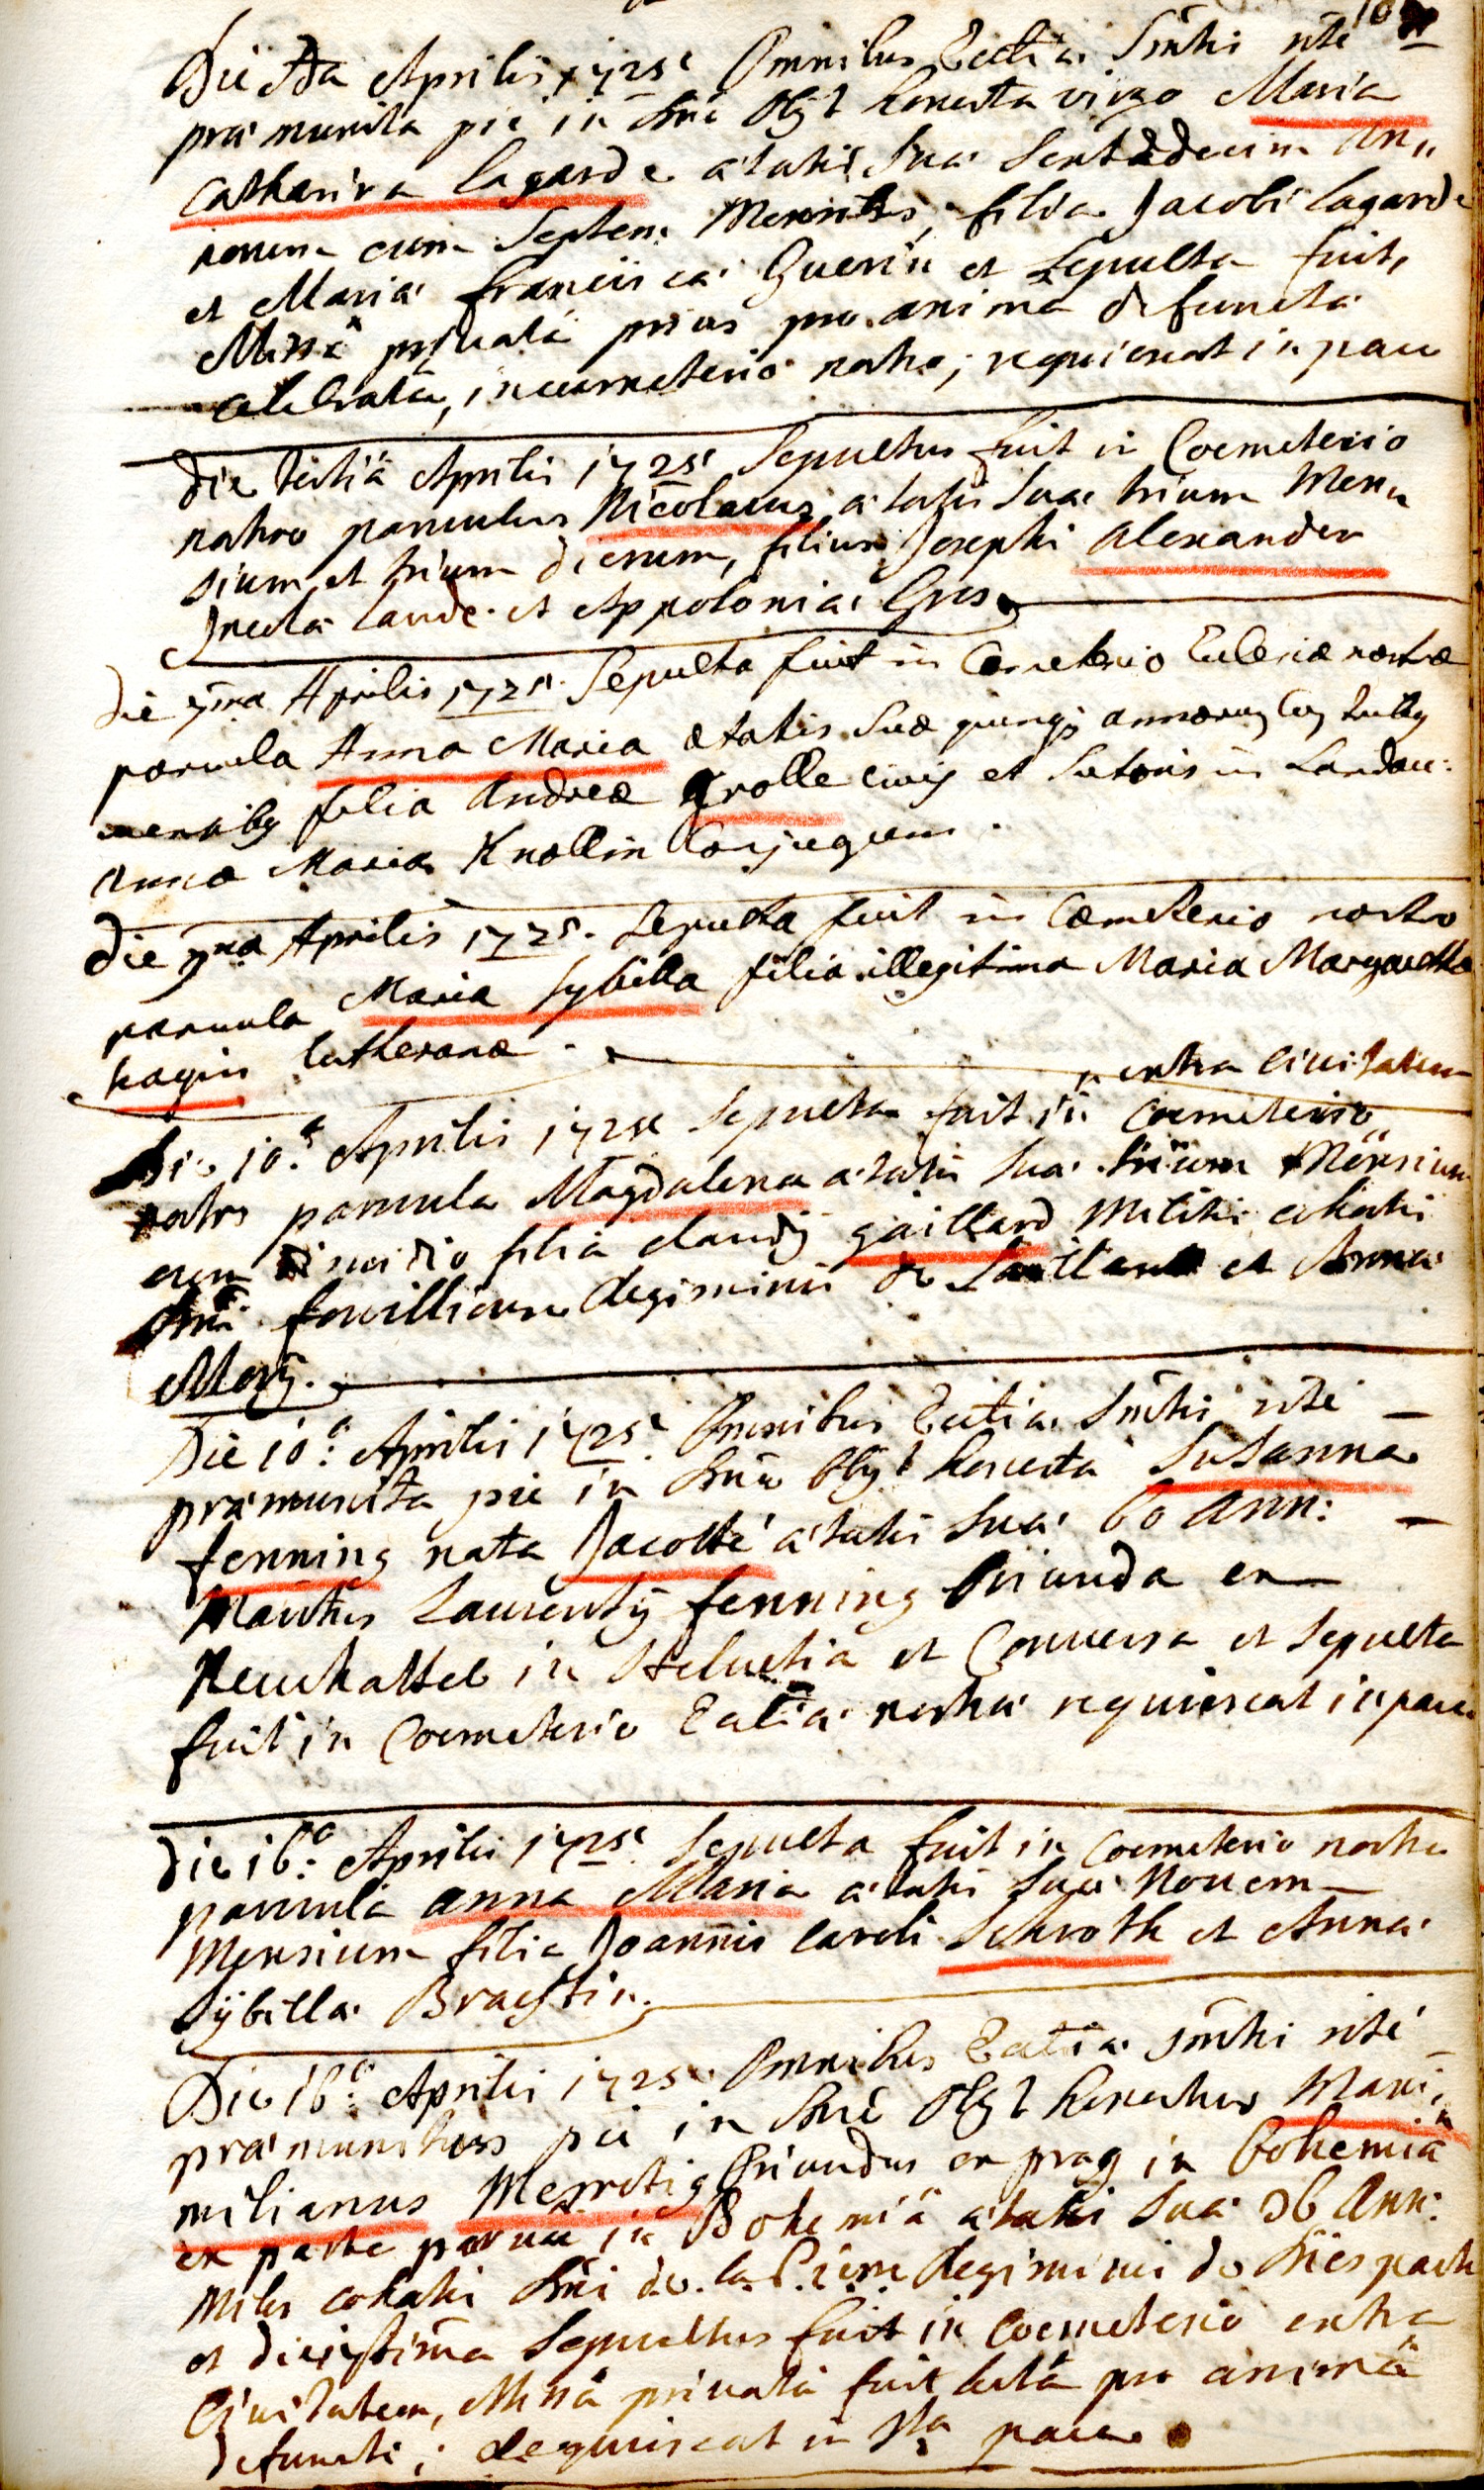 Die 2da Aprilis 1725 Omnibus Ecclia Smtis rite
præmunita pie in Dnô Obijt honesta virgo Maria
Catharina Lagarde ætatis Suæ Sextadecim An„
norum cum Septem Mensibus, filia Jacobi Lagarde
et Maria francisca Guerin et Sepulta fuit,
Missâ privatâ prius pro anima defunctæ
celebratâ, in cœmeterio nostro; requiescat in pace
die tertiâ Aprilis 1725 Sepultus fuit in Coemeterio
nostro parvulus Nicolaus ætatis Suæ trium Men„
sium et trium dierum, filius Josephi Alexander
Incola Landæ et Appolonia Gres
die 7ma Aprilis 1725. Sepulta fuit in Cœmeterio Eclesiæ nostræ
parvula Anna Maria ætatis Suæ quinq; annorum Cum
mensibg filia Andreæ Grolle civis et Sutoris in Landau:
Annæ Maria Knollin Conjugum.
die 7ma Aprilis 1725. Sepulta fuit in Cœmeterio nostro
parvula Maria Sybilla filia illegitima Maria Margaretha
hagin lutheranæ.
extra Civitatem
Die 10.a Aprilis 1725 Sepulta fuit in Coemeterio
nostro parvula Magdalena ætatis Suæ trium Mensium
cum dimidio filia claudij gaillard Militis cohortis
Dni fouillieuse Regiminis de et Anna
Mory.
Die 10.a Aprilis 1725 Omnibus Ecclia Smtis rite
præmunita pie in Dnô Obijt honesta Susanna
fenning nata Jacotté ætatis Suæ 60 Ann:
Maritus Laurentij fenning Oriunda ex
Neuchattel in Helvetia et Conversa et Sepulta
fuit in Coemeterio Ecclia nostra requiescat in pace
Die 16.a Aprilis 1725 Sepulta fuit in Coemeterio nostro
parvula anna Maria ætatis Suæ Novem
Mensium filia Joannis Caroli Schroth et Anna
Sÿbilla Bragstin.
Die 16.a Aprilis 1725 Omnibus Ecclia Smtis rité
præmunitus pie in Dnô Obijt honestus Maxi„
milianus Oriundus ex prag in Bohemiâ
ex parte parva in Bohemiâ ætatis Suæ 36 Ann:
Miles cohortis Dni de la Regiminis de
et Sepultus fuit in Coemeterio extra
Civitatem, Missâ privatâ fuit lectâ pro animâ
defuncti; Requiescat in Sta pace